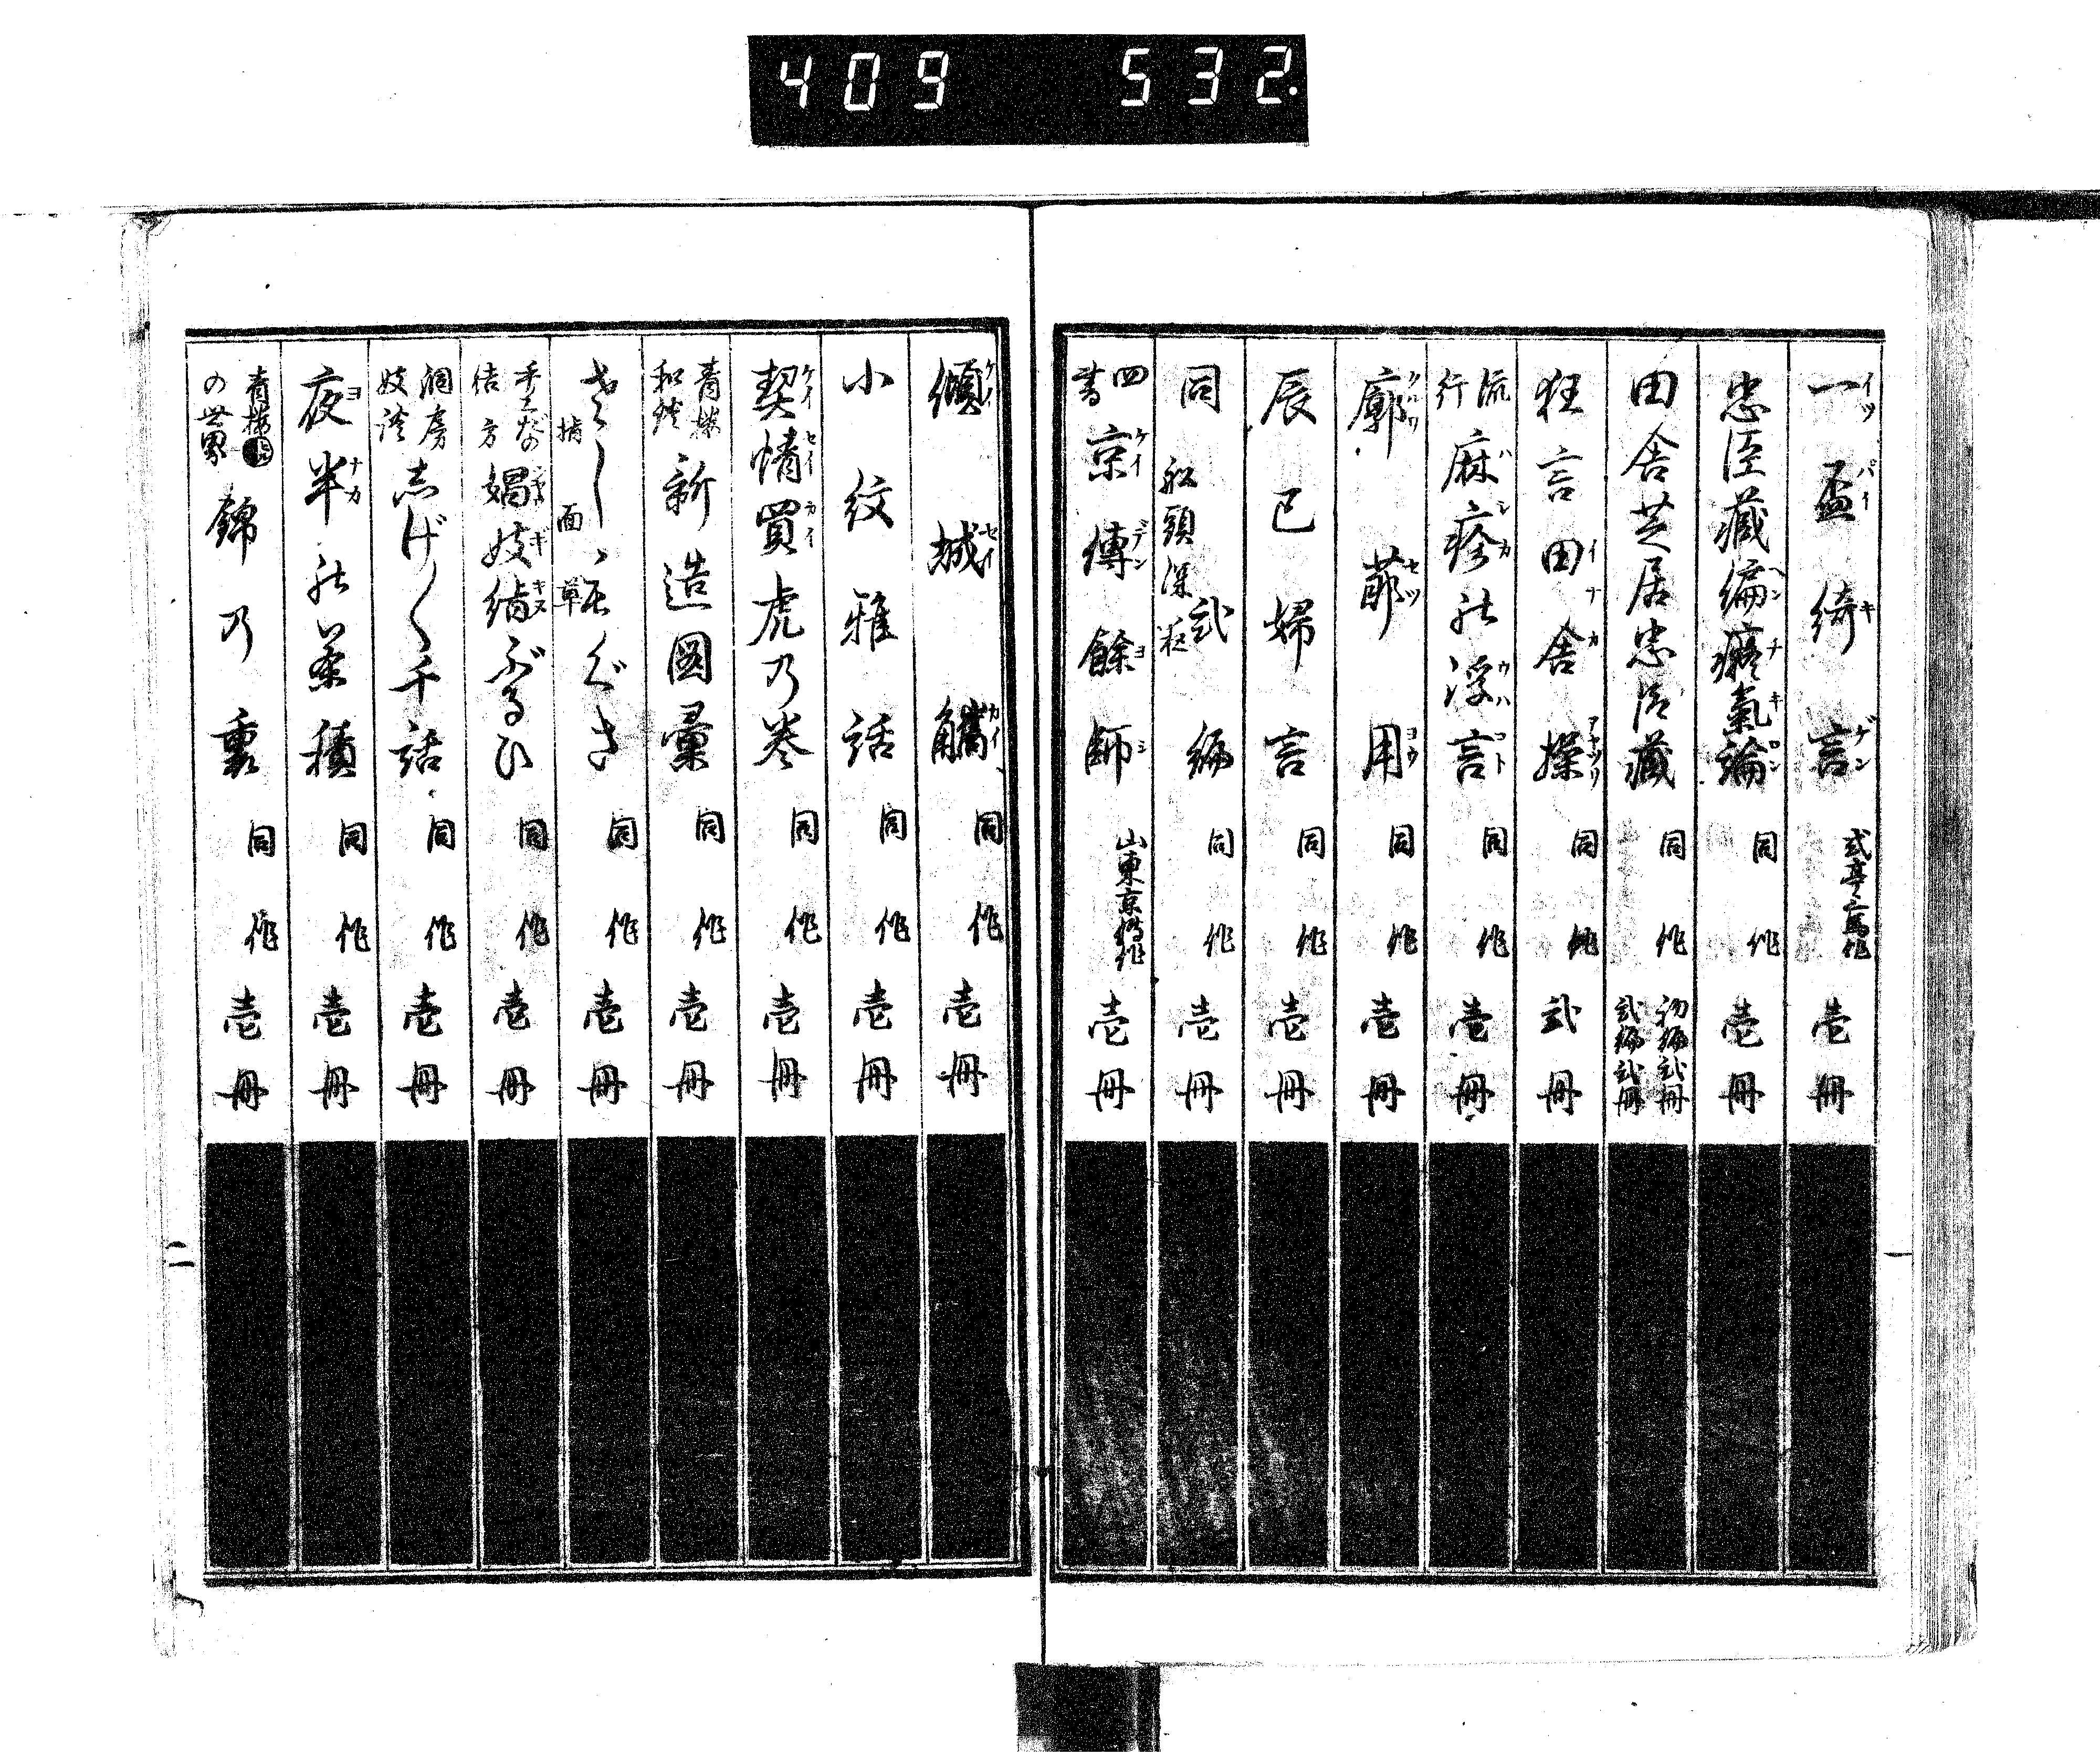 409 532.
一盃綺言 式亭三馬作 壱冊
忠臣藏偏癡氣論 同作 壱冊
田舎芝居忠臣藏 同作 初編弐冊 弐編弐冊
狂言田舎操 同作 弐冊
流行 麻疹 浮言 同作 壱冊
廓節用 同作 壱冊
辰巳婦言 同作 壱冊
同 船頭深話 弐編 同作 壱冊
四書 京傳餘師 山東京傳作 壱冊
傾城觿 同作 壱冊
小紋雅話 同作 壱冊
契情買虎乃巻 同作 壱冊
青楼和談 新造圖彙 同作 壱冊
ぐさ 同作 壱冊
娼妓絹ぶるひ 同作 壱冊
洞房妓談 志げ〱千話 同作 壱冊
夜半 茶積 同作 壱冊
青楼昼の世界 錦乃裏 同作 壱冊
二